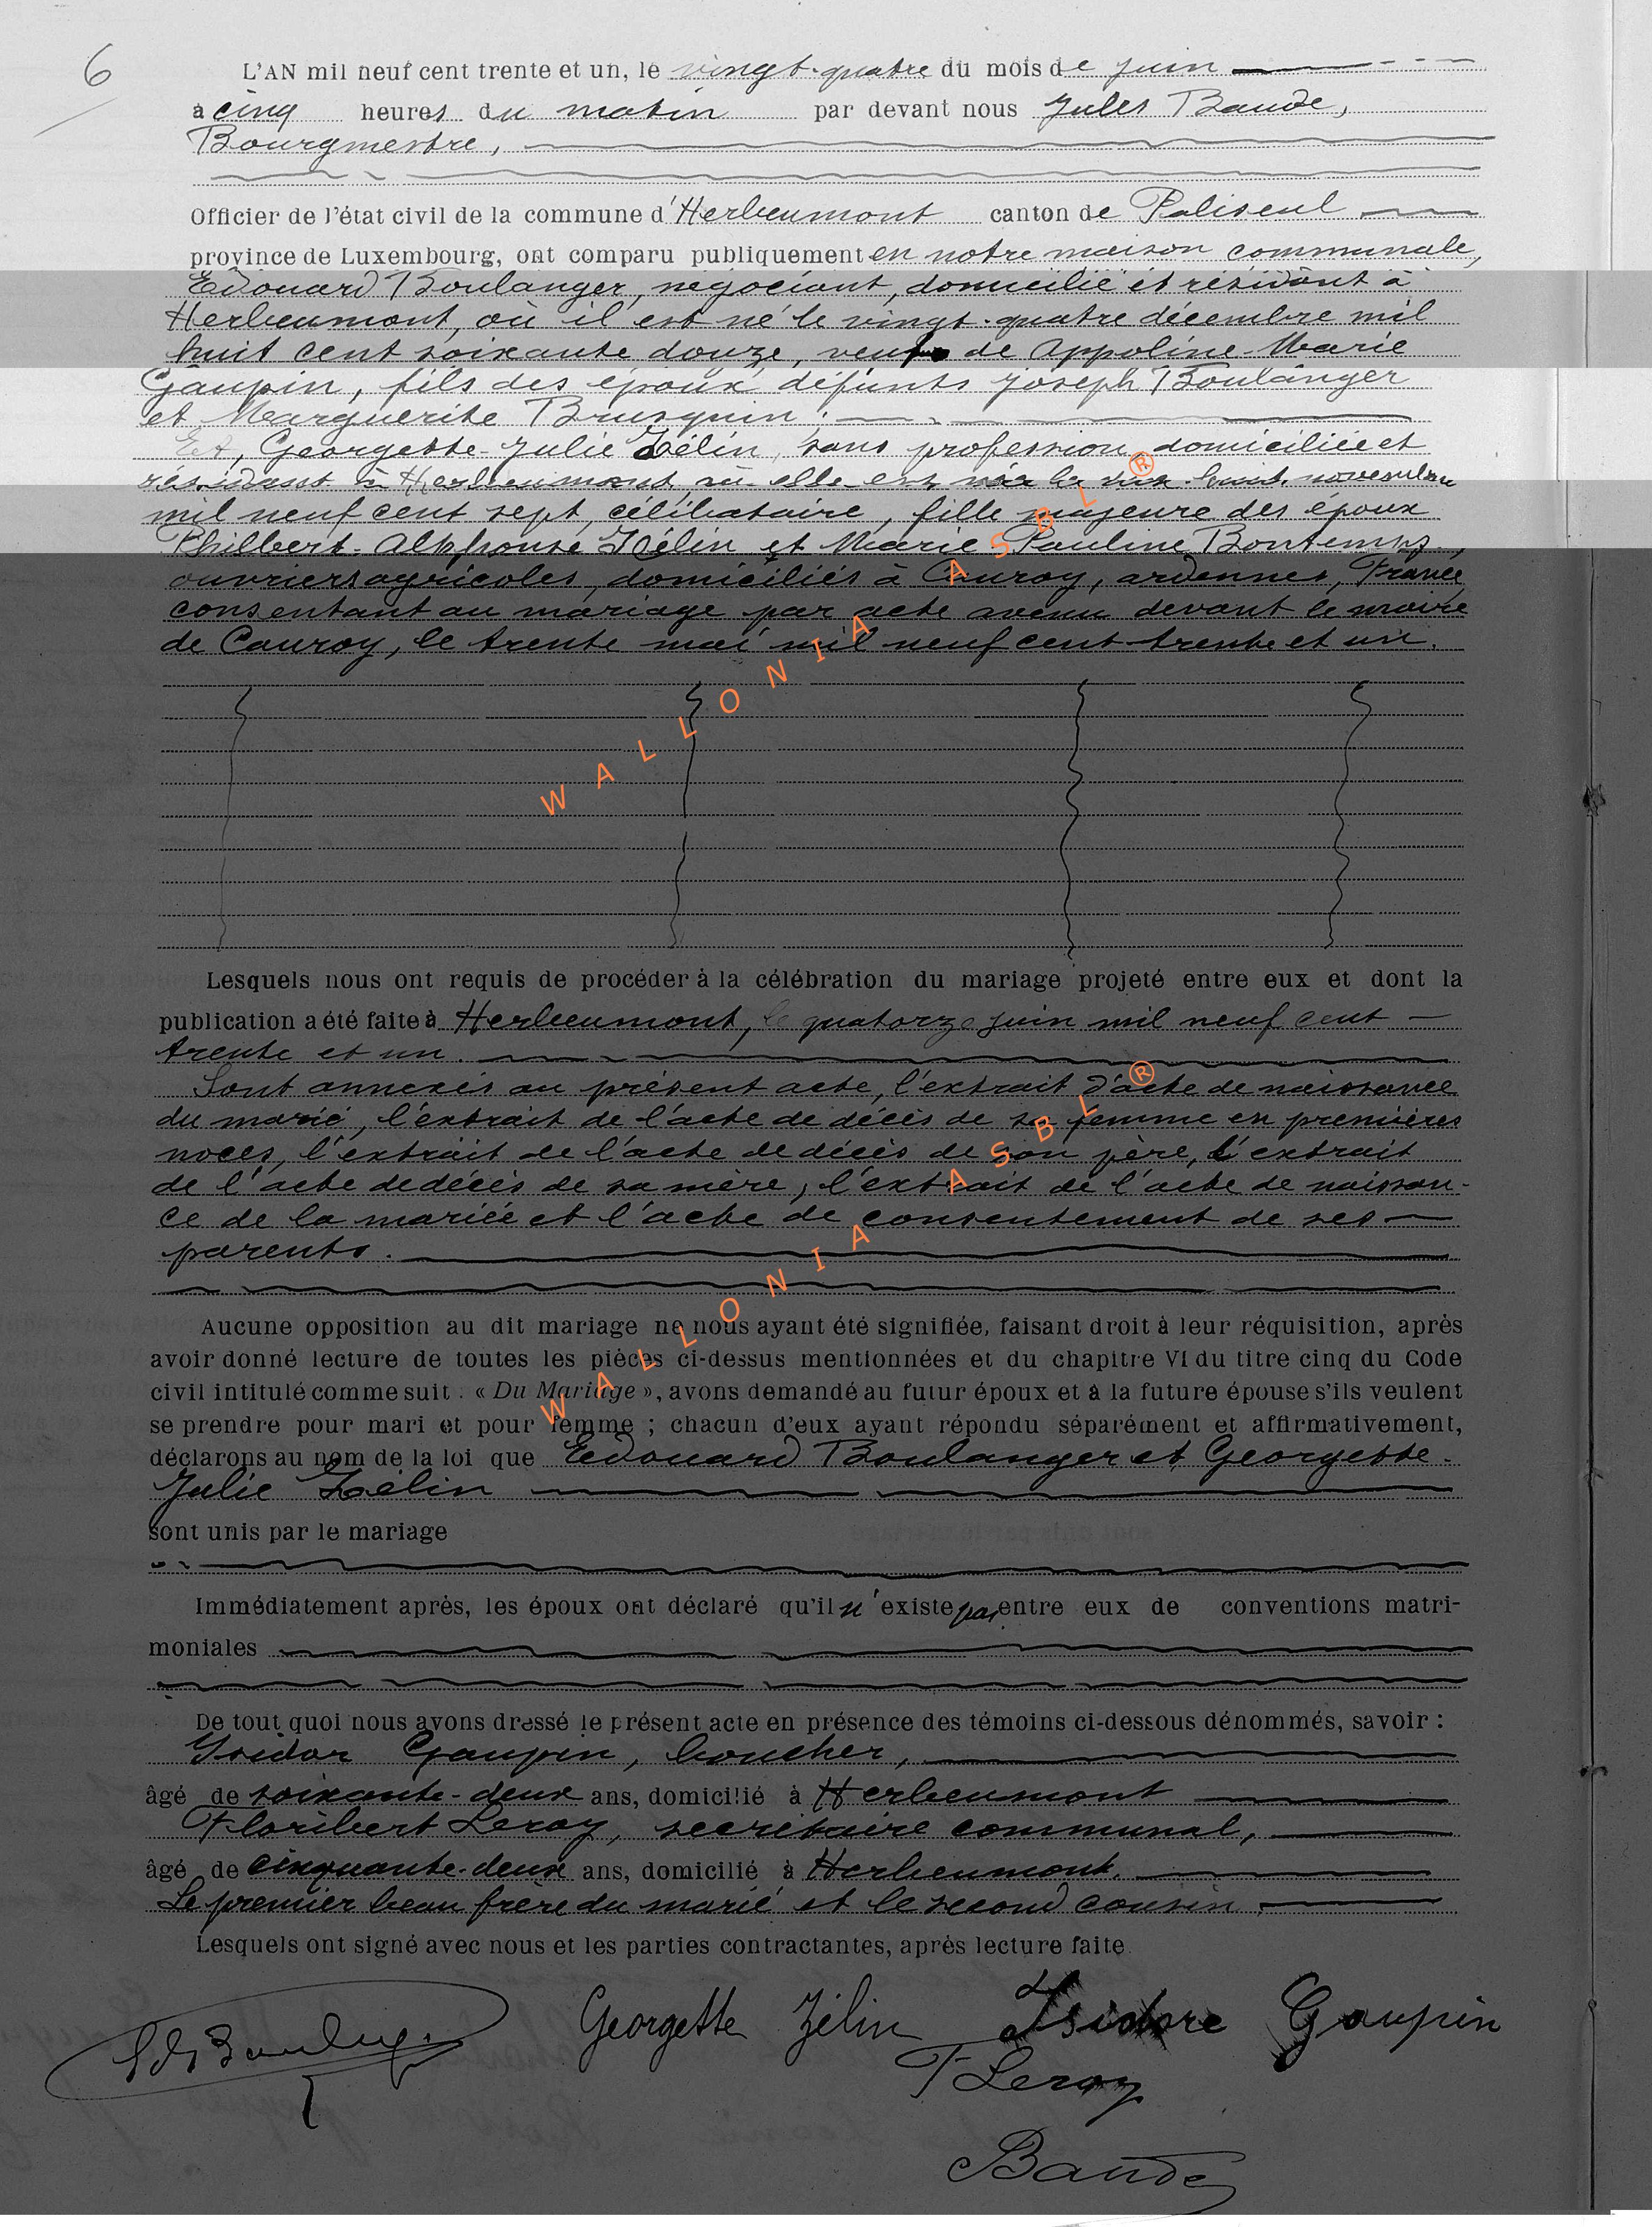 6
L'AN mil neuf cent trente et un, le vingt-quatre du mois de juin
à cinq heures du matin par devant nous Jules Baude,
Bourgmestre,
Officier de l'état civil de la commune d'Herbeumont canton de Paliseul
province de Luxembourg, ont comparu publiquement en notre maison communale,
Edouard Boulanger, négociant, domicilié et résidant à
Herbeumont, où il est né le vingt-quatre décembre mil
huit cent soixante douze, veuf de Appoline-Marie
Gaupin, fils des époux défunts Joseph Boulanger
et Marguerite Brusquin;
Et, Georgette-Julie Zélin, sans profession, domiciliée et
résidant à Herbeumont, où elle est née le dix-huit novembre
mil neuf cent sept, célibataire, fille majeure des époux
Philbert-Alphonse Zélin et Marie Pauline Bontemps,
ouvriers agricoles, domiciliés à Cauroy, ardennes, France,
consentant au mariage par acte avenu devant le maire
de Cauroy, le trente mai mil neuf cent trente et un.
Lesquels nous ont requis de procéder à la célébration du mariage projeté entre eux et dont la
publication a été faite à Herbeumont, le quatorze juin mil neuf cent
trente et un.
Sont annexés au présent acte, l'extrait d'acte de naissance
du marié, l'extrait de l'acte de décès de sa femme en premières
noces, l'extrait de l'acte de décès de son père, l'extrait
de l'acte de décès de sa mère, l'extrait de l'acte de naissan-
ce de la mariée et l'acte de consentement de ses
parents.
Aucune opposition au dit mariage ne nous ayant été signifiée, faisant droit à leur réquisition, après
avoir donné lecture de toutes les pièces ci-dessus mentionnées et du chapitre VI du titre cinq du Code
civil intitulé comme suit : « Du Mariage », avons demandé au futur époux et à la future épouse s'ils veulent
se prendre pour mari et pour femme ; chacun d'eux ayant répondu séparément et affirmativement,
déclarons au nom de la loi que Edouard Boulanger et Georgette-
Julie Zélin
sont unis par le mariage
Immédiatement après, les époux ont déclaré qu'il n'existe pas entre eux de conventions matri-
moniales
De tout quoi nous avons dressé le présent acte en présence des témoins ci-dessous dénommés, savoir :
Isidor Gaupin, boucher,
âgé de soixante-deux ans, domicilié à Herbeumont
Floribert Leroy, secrétaire communal,
âgé de cinquante-deux ans, domicilié à Herbeumont.
Le premier beau frère du marié et le second cousin.
Lesquels ont signé avec nous et les parties contractantes, après lecture faite.
Ed Boulanger Georgette Zélin Isidore Gaupin
F Leroy
Baude
WALLONIA ASBL ®
WALLONIA ASBL ®